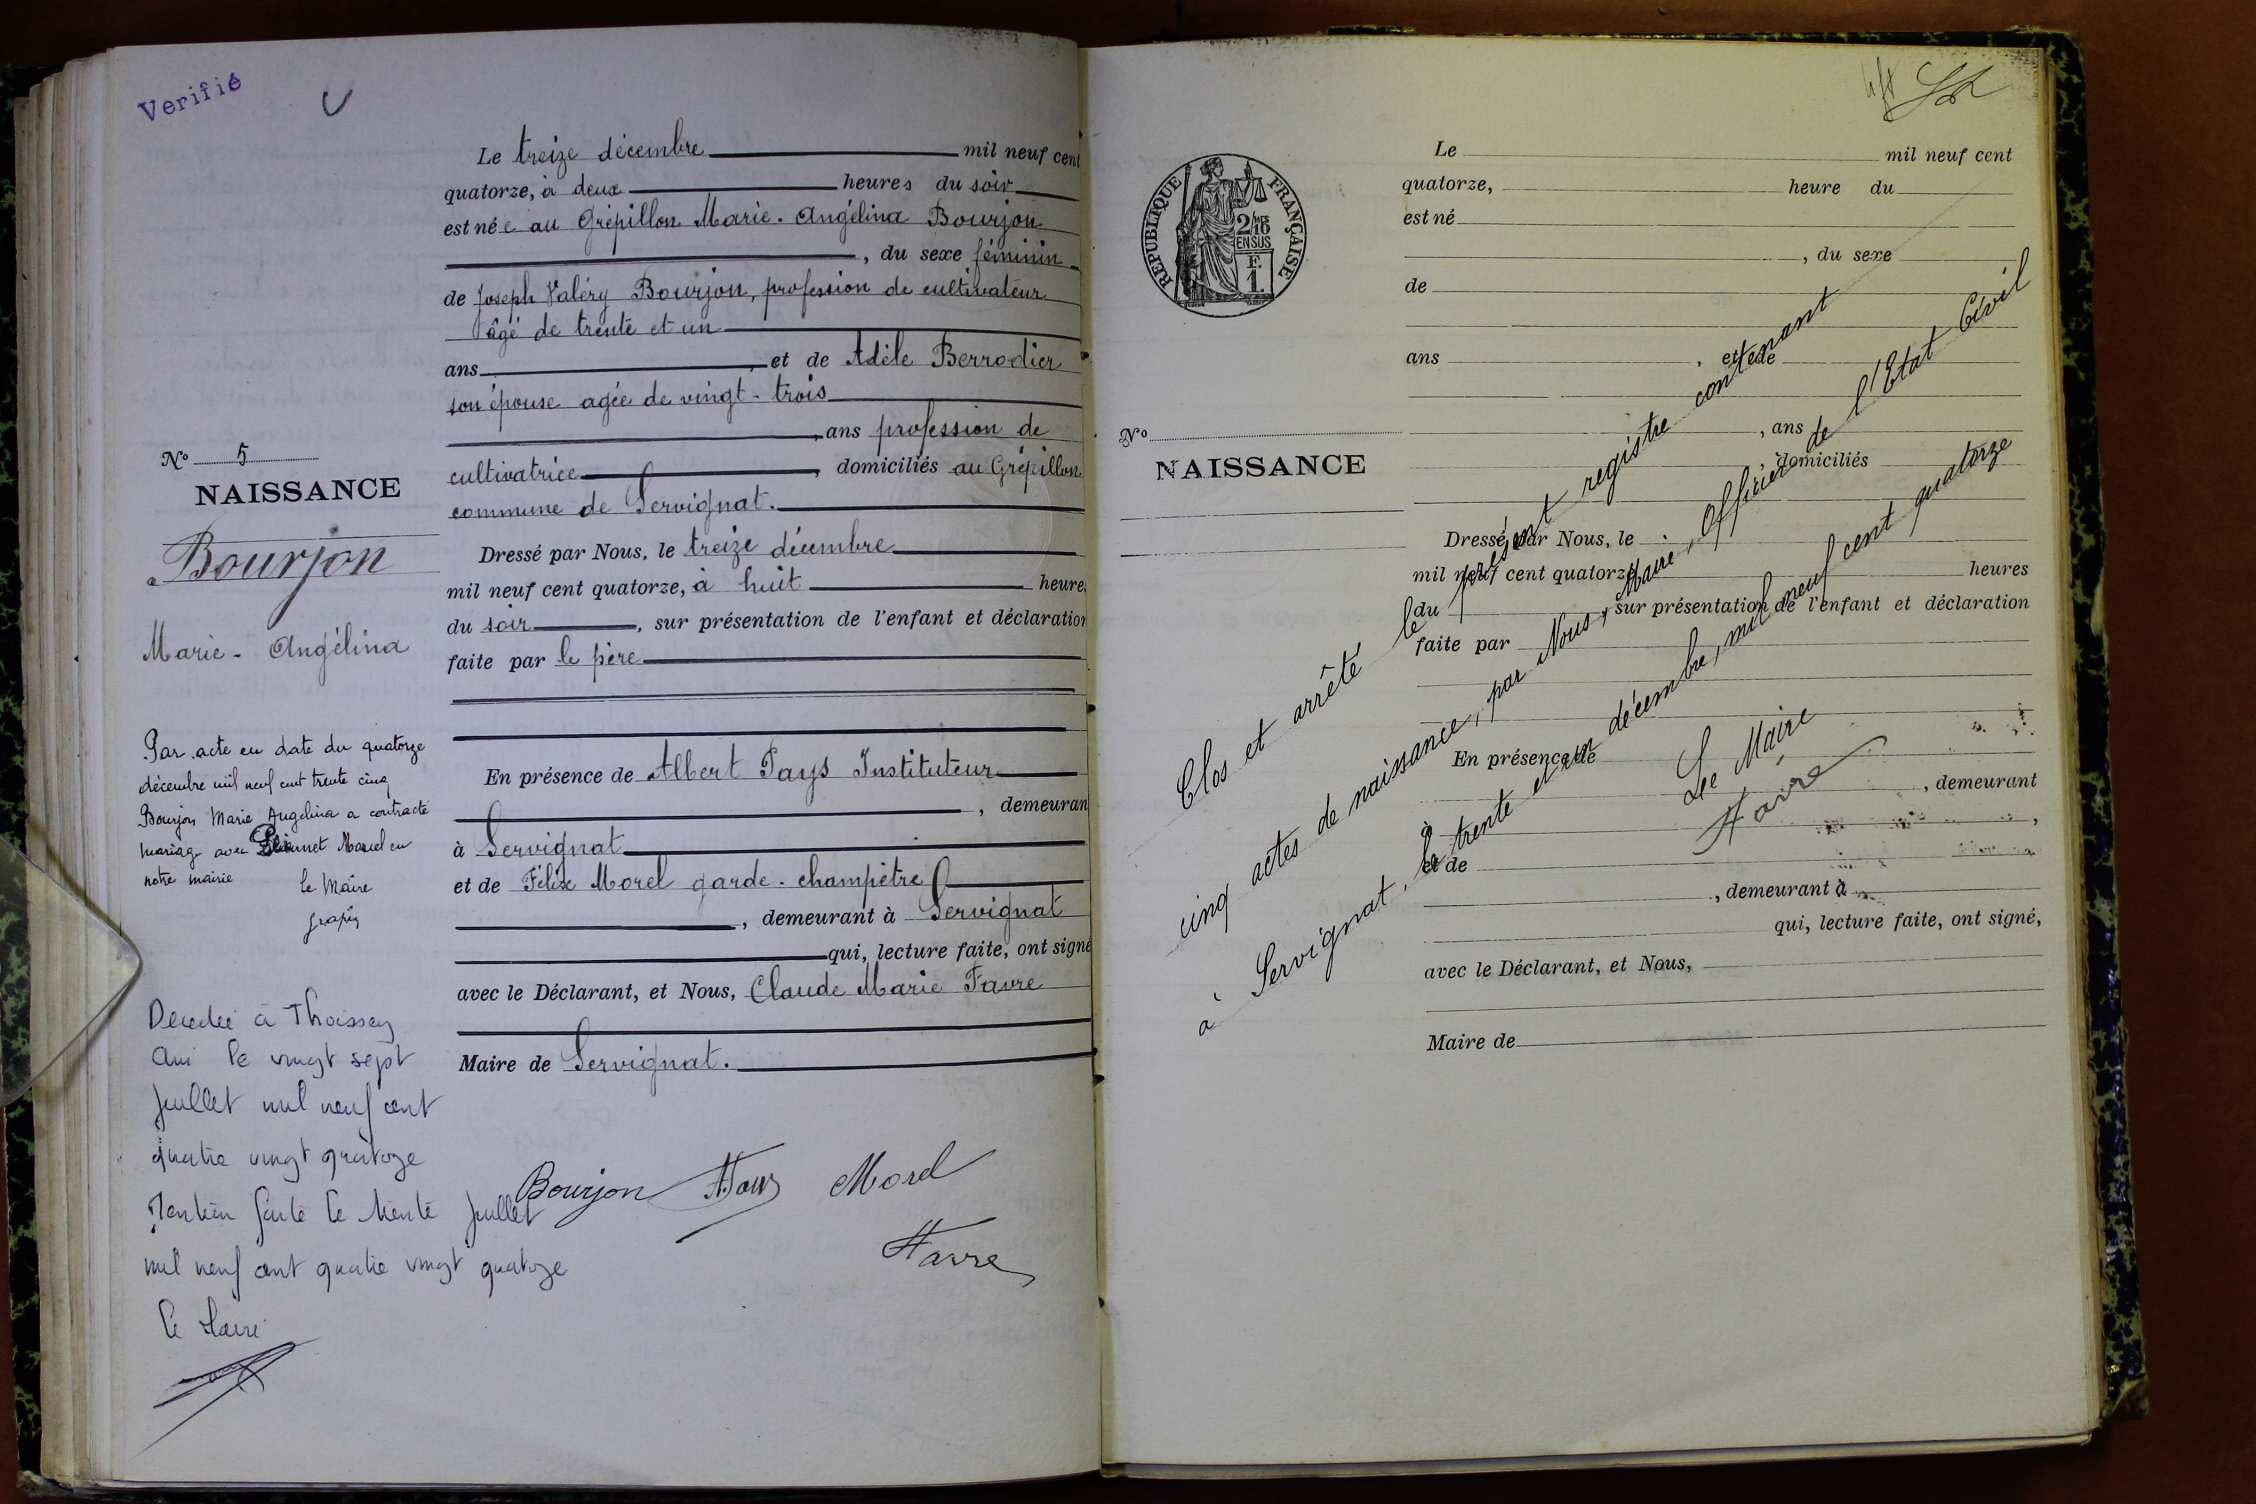 Verifié
Le treize décembre mil neuf cent
quatorze, à deux heures du soir
est née au Grépillon Marie-Angélina Bourjon
, du sexe féminin
de Joseph Valéry Bourjon, profession de cultivateur
âgé de trente et un
ans, et de Adèle Berrodier
son épouse agée de vingt-trois
, ans profession de
cultivatrice, domiciliés au Grépillon
commune de Servignat.
Dressé par Nous, le treize décembre
mil neuf cent quatorze, à huit heures
du soir, sur présentation de l'enfant et déclaration
faite par le père
En présence de Albert Pays Instituteur
, demeurant
à Servignat
et de Félix Morel garde-champêtre
, demeurant à Servignat
qui, lecture faite, ont signé
avec le Déclarant, et Nous, Claude Marie Favre
Maire de Servignat.
Bourjon Morel
Favre
No 5
NAISSANCE
Bourjon
Marie-Angélina
Par acte en date du quatorze
décembre mil neuf cent trente cinq
Bourjon Marie Angelina a contracté
mariage avec Marcel en
notre mairie
Le Maire
Décédée à Thoissey
Ain le vingt sept
juillet mil neuf cent
quatre vingt quatorze
Mention faite le trente juillet
mil neuf cent quatre vingt quatorze
Le Maire
RÉPUBLIQUE FRANÇAISE
2/10 EN SUS
F.
1.
No
NAISSANCE
Le mil neuf cent
quatorze, heure du
est né
, du sexe
de
ans , et de
, ans
, domiciliés
Dressé par Nous, le
mil neuf cent quatorze, heures
du , sur présentation de l'enfant et déclaration
faite par
En présence de
, demeurant
à ,
et de
, demeurant à
qui, lecture faite, ont signé,
avec le Déclarant, et Nous,
Maire de
Clos et arrêté le présent registre contenant
cinq actes de naissance, par Nous, Maire, Officier de l'Etat Civil
à Servignat, le trente et un décembre, mil neuf cent quatorze
Le Maire
Favre